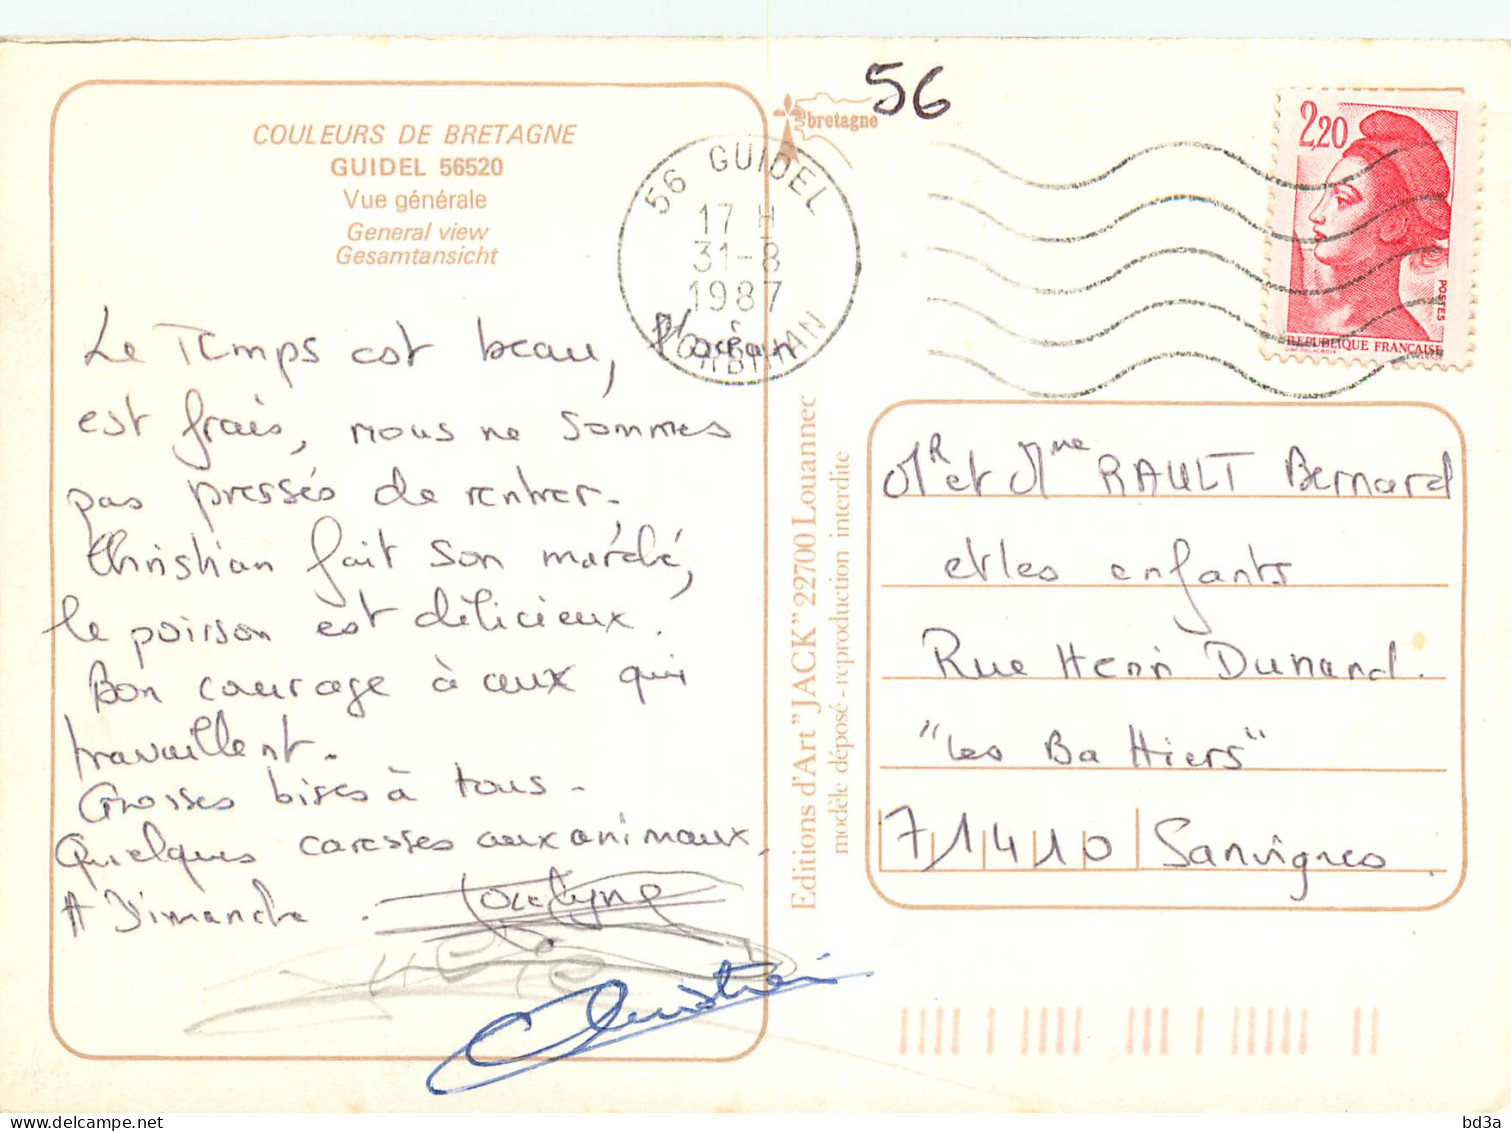 COULEURS DE BRETAGNE
GUIDEL 56520
Vue générale
General view
Gesamtansicht
Le Temps est beau, l'océan
est frais, nous ne sommes
pas pressés de rentrer.
Christian fait son marché,
le poisson est délicieux.
Bon courage à ceux qui
travaillent.
Grosses bises à tous.
Quelques caresses aux animaux.
A Dimanche.
Jocelyne
Christian
bretagne
56
56 GUIDEL
17 H
31-8
1987
MORBIHAN
2,20
POSTES
REPUBLIQUE FRANÇAISE
Editions d'Art "JACK" 22700 Louannec
modèle déposé - reproduction interdite
Mr et Mme RAULT Bernard
et les enfants
Rue Henri Dunand.
"Les Battiers"
71410 Sanvignes.
bd3a